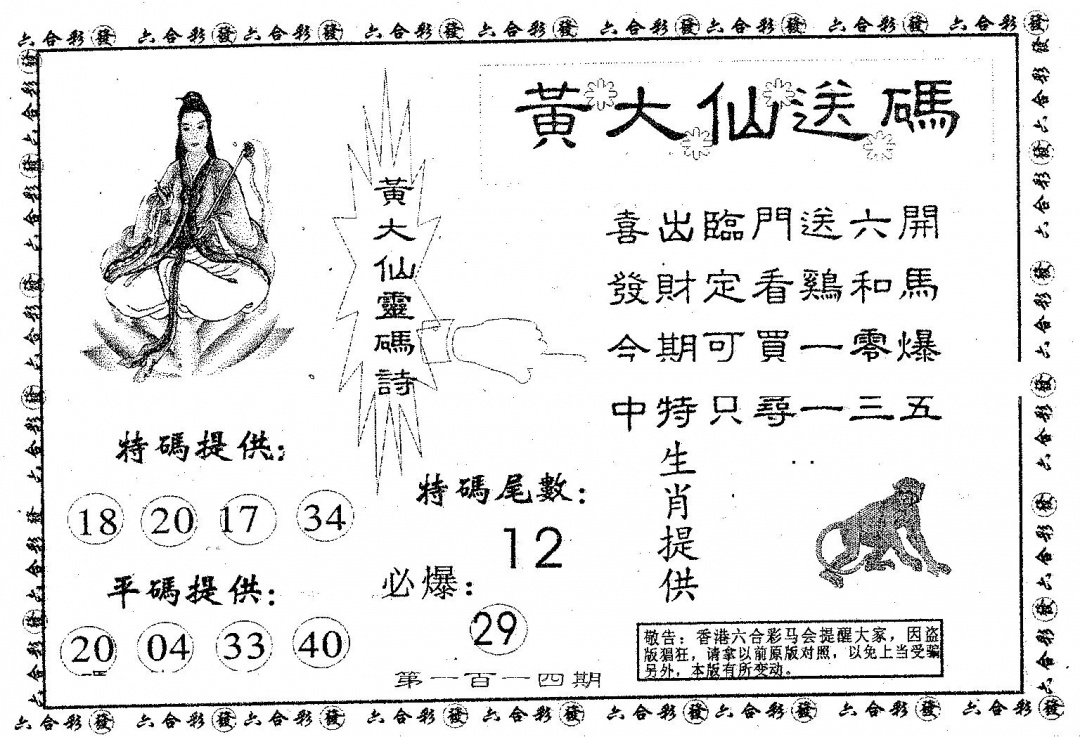 六合彩發 六合彩發 六合彩發 六合彩發 六合彩發 六合彩發 六合彩發 六合彩發 六合彩發
黃大仙送碼
黃大仙靈碼詩
喜出臨門送六開
發財定看鷄和馬
今期可買一零爆
中特只尋一三五
特碼提供：
18 20 17 34
平碼提供：
20 04 33 40
特碼尾數：
12
必爆：
29
生肖提供
敬告：香港六合彩马会提醒大家，因盗
版猖狂，请拿以前原版对照，以免上当受骗
另外，本版有所变动。
第一百一四期
六合彩發 六合彩發 六合彩發 六合彩發 六合彩發 六合彩發 六合彩發 六合彩發 六合彩發